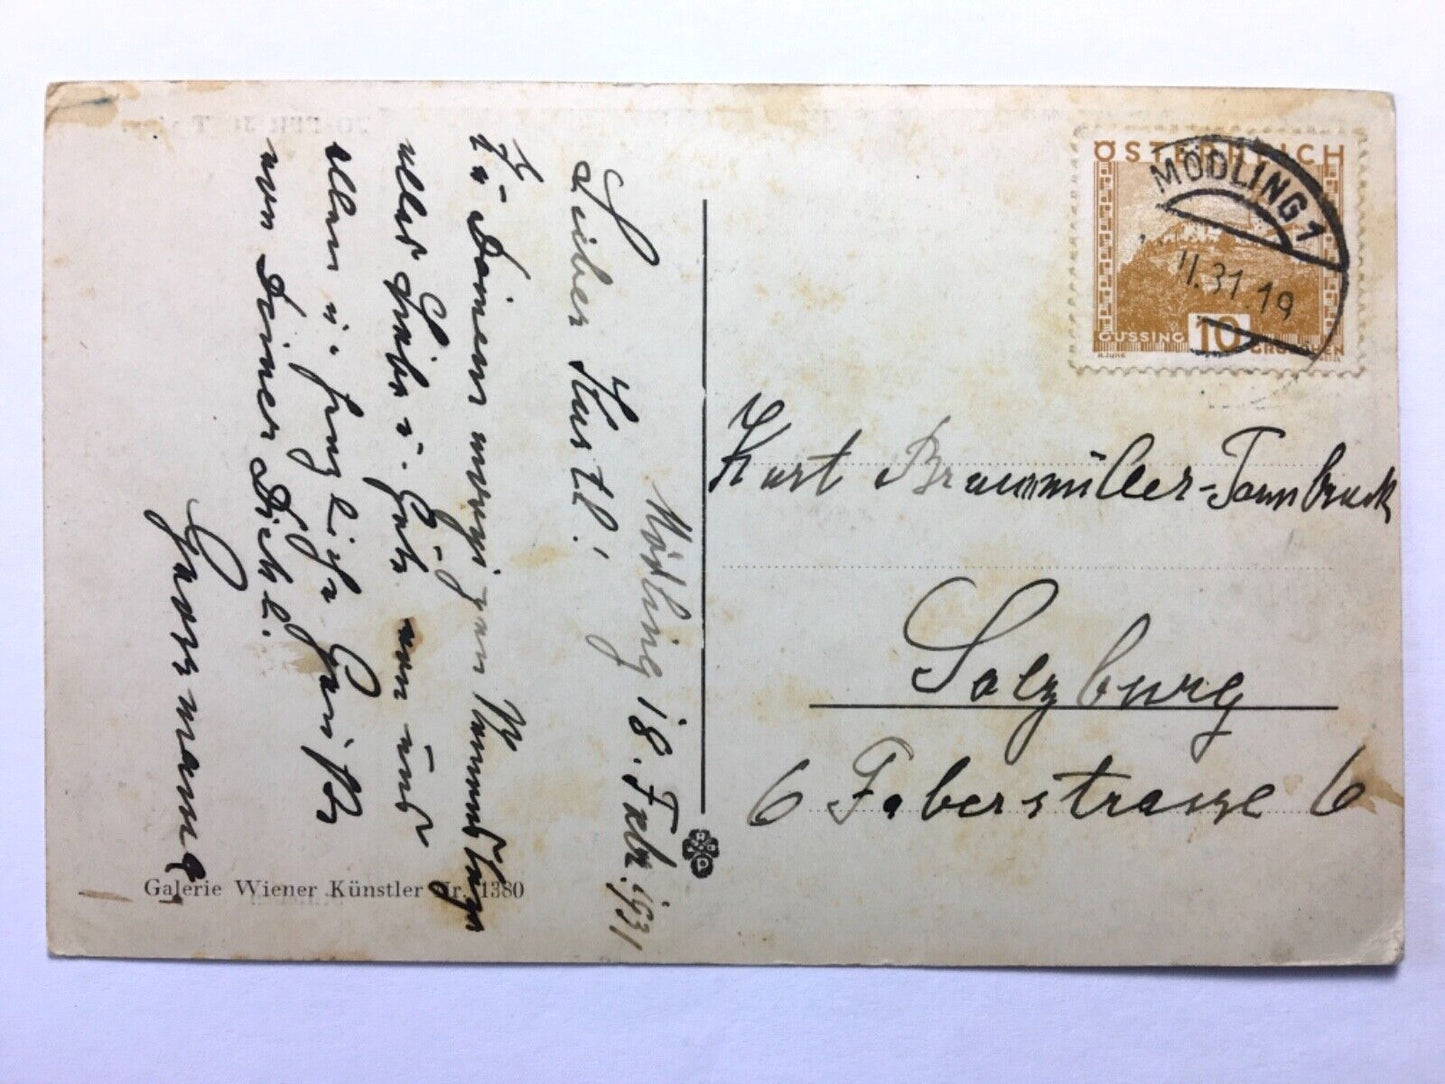 Mödling 18. Febr. 1931
Lieber Kurtl!
Zu Deinem morgigen Namenstage
alles Liebe u. Gute von uns
allen u. herzliche Grüße
von Deiner Dich l.
Galerie Wiener Künstler Nr. 1380
ÖSTERREICH
GÜSSING 10 GROSCHEN
MÖDLING 1
II.31.19
Kurt Braumüller-Tannbruck
Salzburg
6 Faberstrasse 6